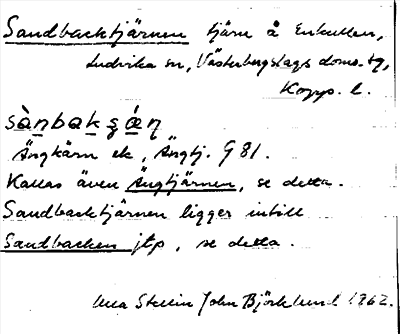 Sandbacktjärnen tjärn å Enkullen,
Ludvika sn, Västerbergslags doms. tg,
Kopp. l.
sànbakʂǽɳ
Ängkärn ek, Ängtj. G 81.
Kallas även Ängtjärnen, se detta.
Sandbacktjärnen ligger intill
Sandbacken jtp, se detta.
Stellin John Björklund 1962.